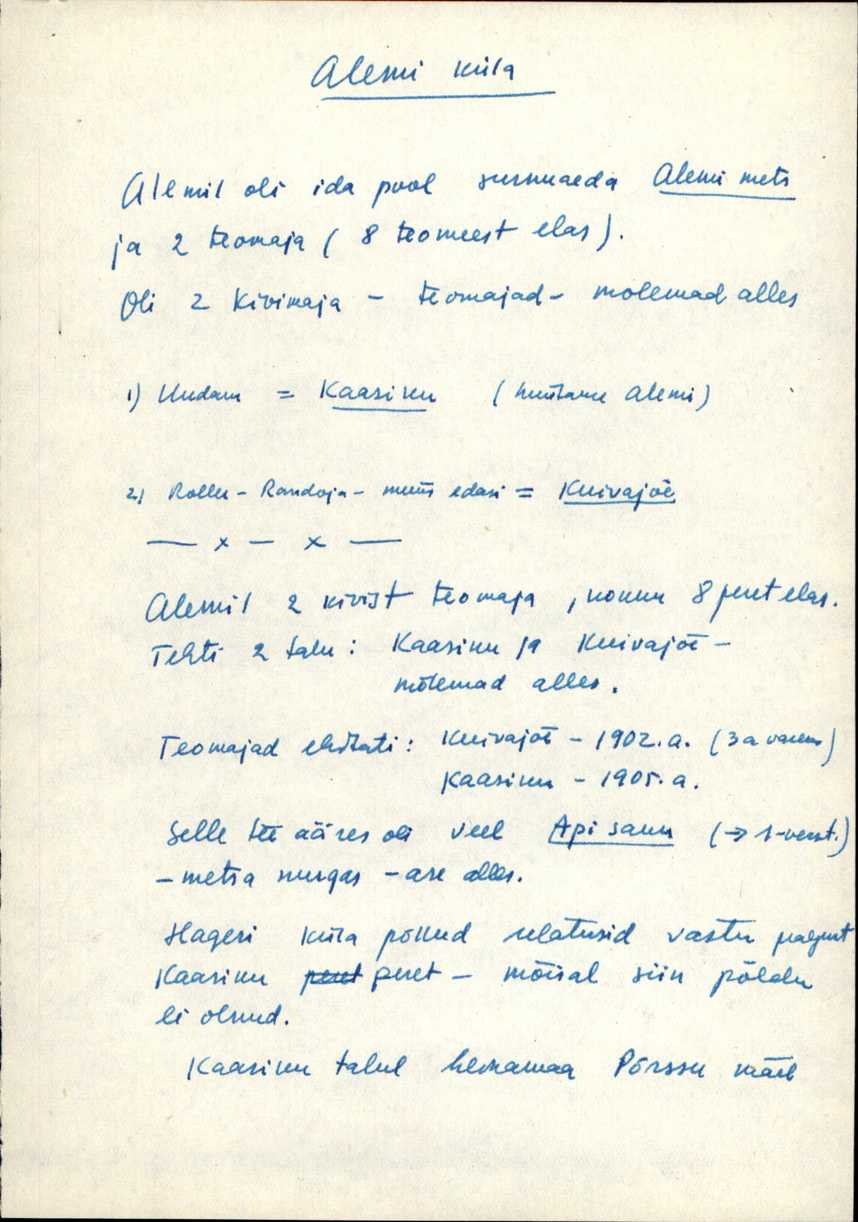 Alemi küla
Alemil oli ida pool surnuaeda Alemi mets
ja 2 teomaja ( 8 teomeest elas ).
Oli 2 kivimaja – teomajad – mõlemad alles
1) Uudam = Kaasiku ( hüütakse Alemi )
2) Rollu - Randoja - müüs edasi = Kuivajõe
— x — x —
Alemil 2 kivist teomaja , kokku 8 peret elas.
Tehti 2 talu : Kaasiku ja Kuivajõe –
mõlemad alles.
Teomajad ehitati : Kuivajõe – 1902.a. ( 3 a varem )
Kaasiku – 1905.a.
Selle tee ääres oli veel Api saun ( → s-verst. )
– metsa nurgas – ase alles.
Hageri küla põllud ulatusid vastu praegust
Kaasiku peret – mõisal siin põldu
ei olnud.
Kaasiku talul heinamaa Põrssu mäel